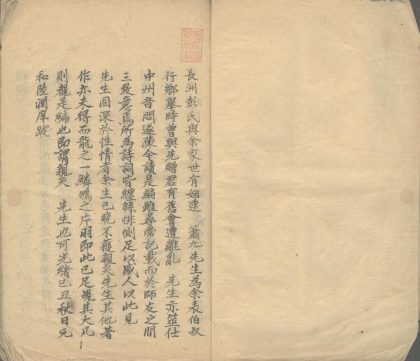 長洲彭氏與余家世有姻連 蕭九先生為余表伯叔
行鄉舉時曾與先贈君有舊會遭離亂 先生亦筮仕
中州音問遂疎今讀是編雖尋常記載而於師友之間
三致意焉所為詩詞皆纏緜悱惻足以感人以此見
先生固深於性情者余生已晚不獲親炙先生其他著
作亦未得而龍之一鱗鳳之片羽即此已足覘其大凡
則龍是編也即謂親炙 先生也可光緒己丑秋日元
和陸潤庠跋